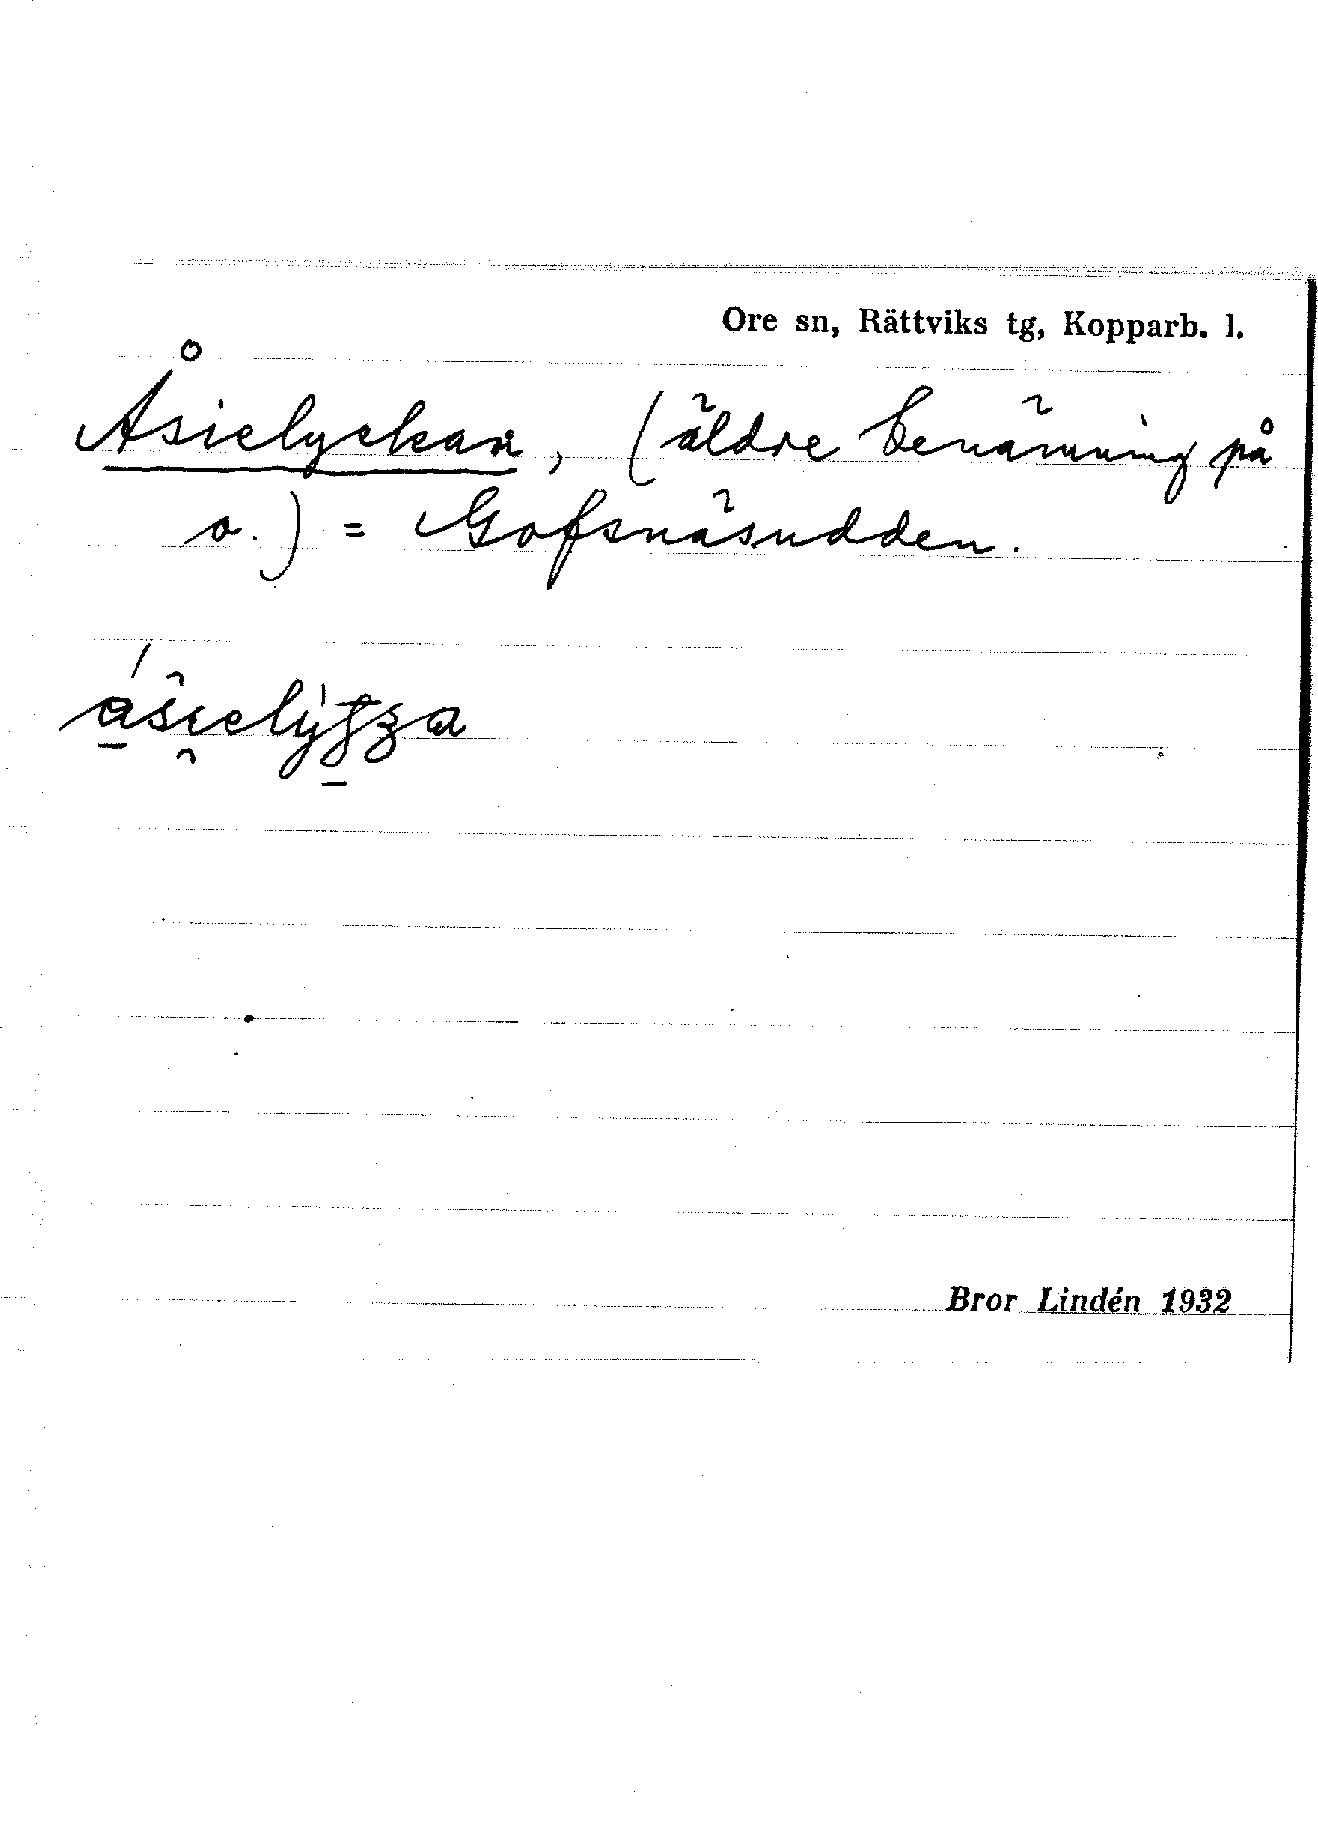 Ore sn, Rättviks tg, Kopparb. l.
Åsielyckan, (äldre benämning på
o.) = Gofsnäsudden.
Bror Lindén 1932